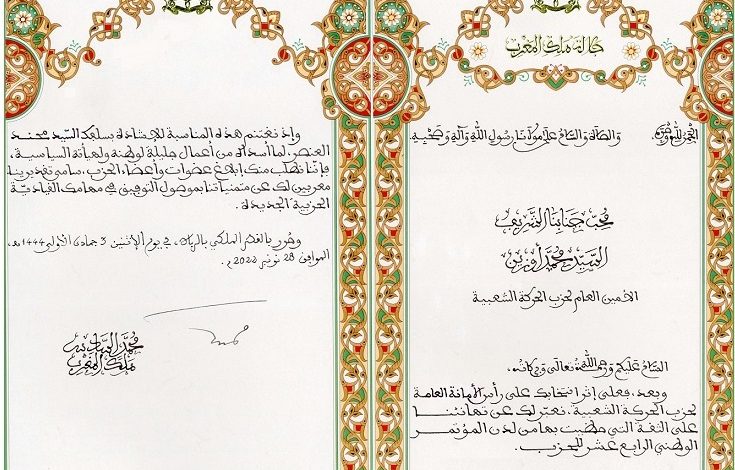 جلالة ملك المغرب
الحمد لله وحده والصلاة والسلام على مولانا رسول الله وآله وصحبه.
محب جنابنا الشريف
السيد محمد أوزين
الأمين العام لحزب الحركة الشعبية
السلام عليكم ورحمة الله تعالى وبركاته،
وبعد، فعلى إثر انتخابك على رأس الأمانة العامة
لحزب الحركة الشعبية، نعبر لك عن تهانئنا
على الثقة التي حظيت بها من لدن المؤتمر
الوطني الرابع عشر للحزب.
وإذ نغتنم هذه المناسبة للإشادة بسلفك السيد محند
العنصر، لما أسداه من أعمال جليلة لوطنه ولهيأته السياسية،
فإننا نطلب منك إبلاغ عضوات وأعضاء الحزب، سامي تقديرنا
معربين لك عن متمنياتنا بموصول التوفيق في مهامك القيادية
الحزبية الجديدة.
وحرر بالقصر الملكي بالرباط، في يوم الإثنين 3 جمادى الأولى 1444هـ،
الموافق 28 نونبر 2022م.
محمد السادس
ملك المغرب